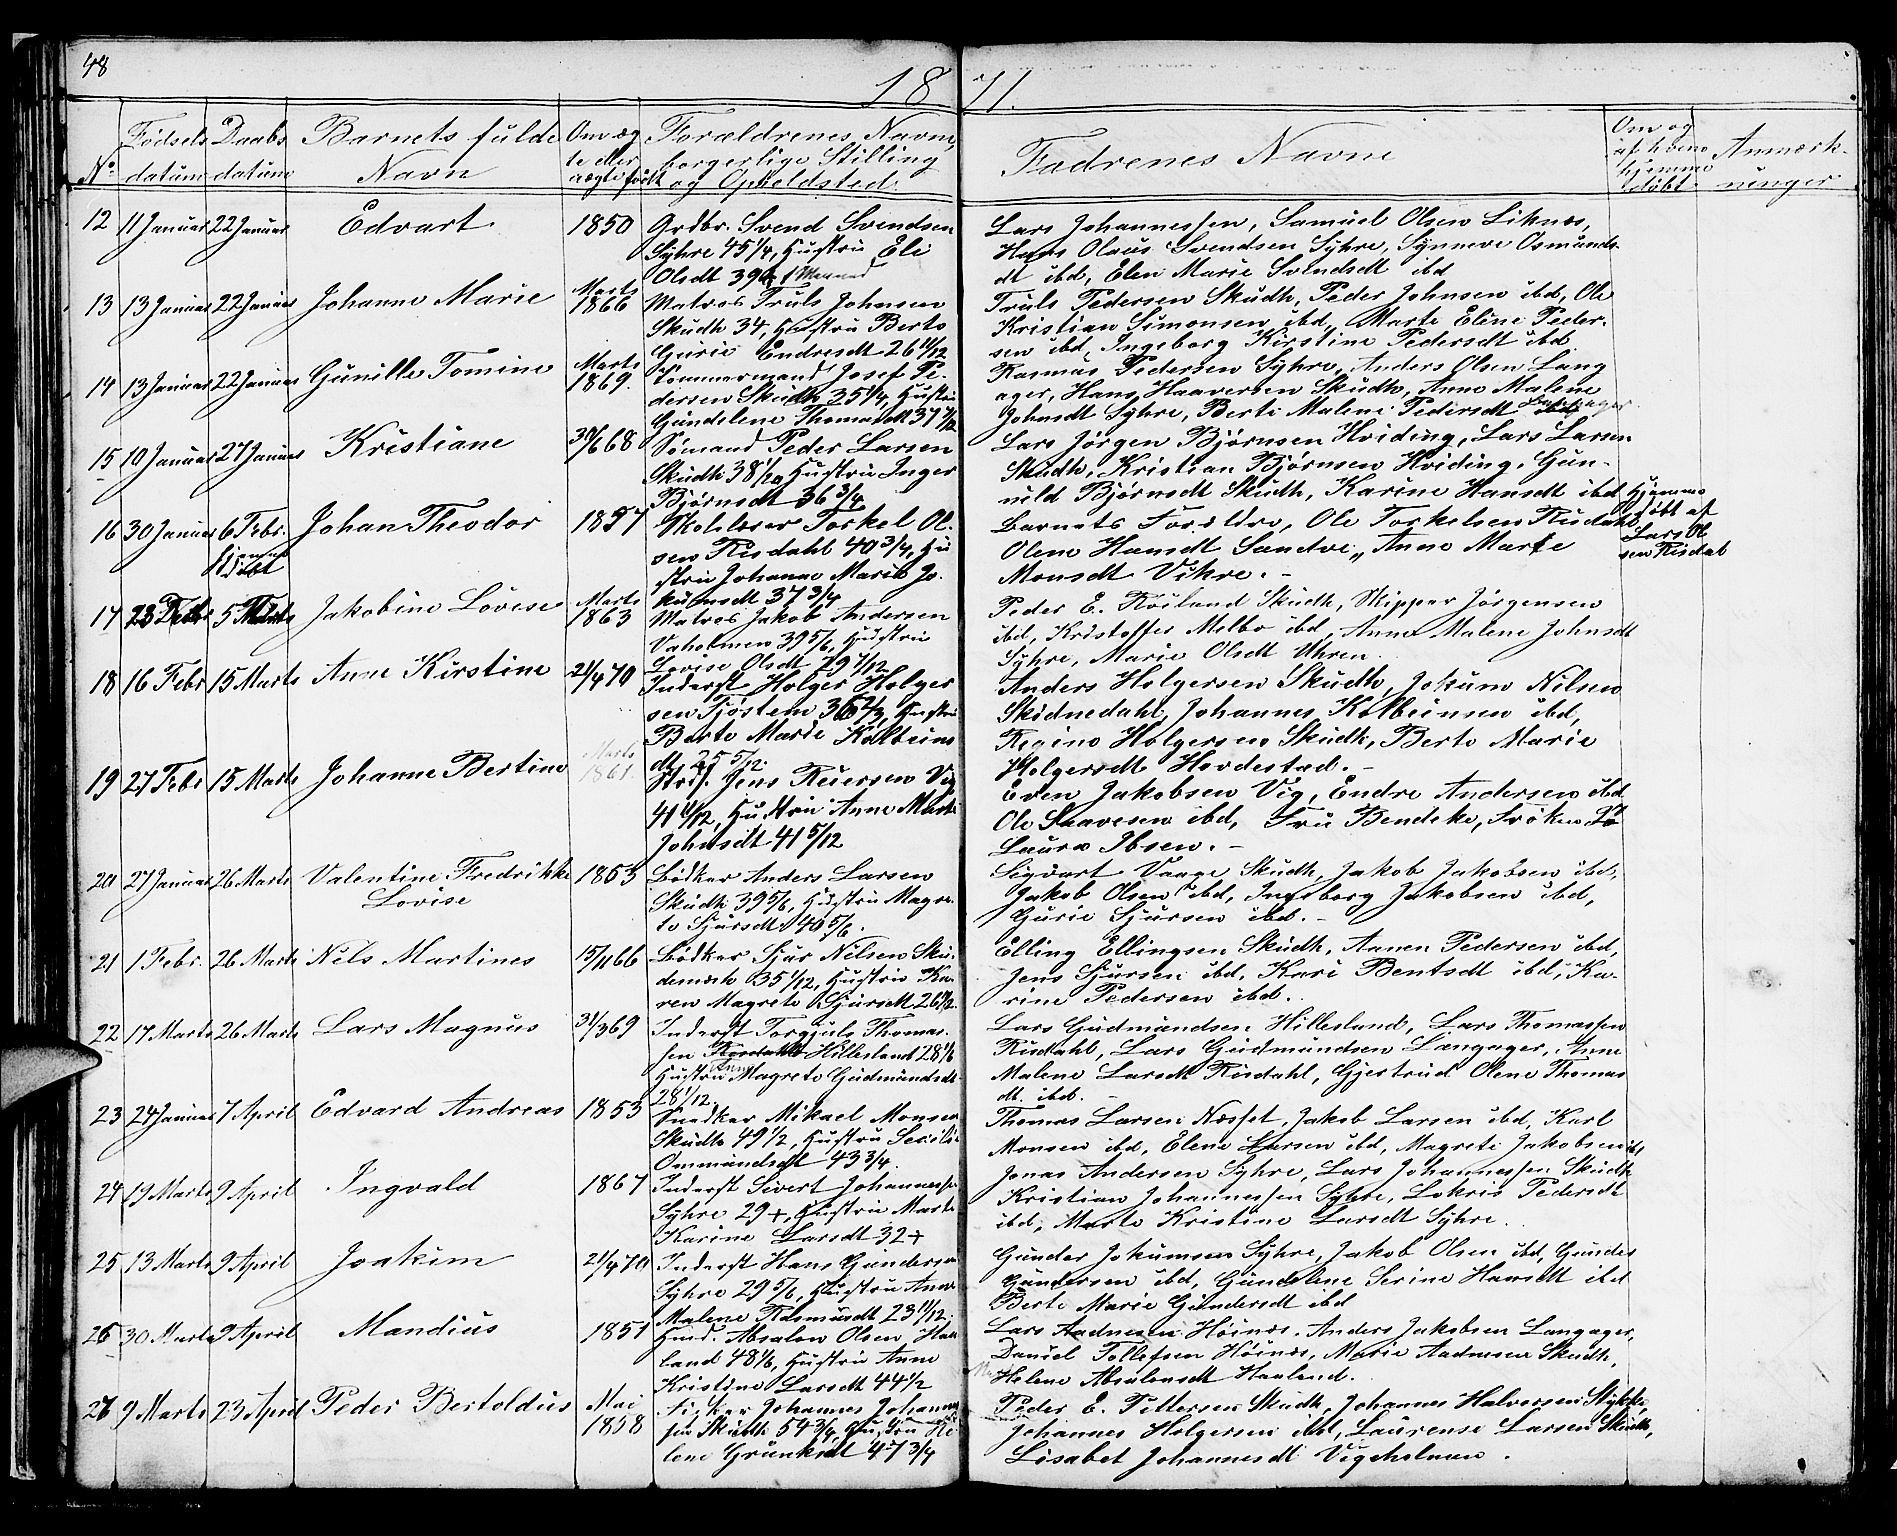 48
1871.
No. Fødsels datum Daabs datum Barnets fulde Navn Om ægte eller uægte født Forældrenes Navne, borgerlige Stilling og Opholdsted. Fadrenes Navne Om og af hvem hjemme døbt Anmærkninger
12 11 Januar 22 Januar Edvart 1850 Grdbr. Svend Svendsen
Syhre 45 1/4, Hustru Eli
Olsdt 39
Lars Johannessen, Samuel Olsen Liknæs,
Hans Olaus Svendsen Syhre, Synneve Osmunds-
dt ibd, Elen Marie Svendsdt ibd
13 13 Januar 22 Januar Johanne Marie Marts 1866 Matros Truls Johnsen
Skudh 34, Hustru Berte
Gurie Endresdt 26 11/12
Truls Pedersen Skudh, Peder Johnsen ibd, Ole
Kristian Simonsen ibd, Marte Eline Peder-
sen ibd, Ingeborg Kirstine Pedersdt ibd.
14 13 Januar 22 Januar Gunille Tomine Marts 1869. Tømmermand Josef Pe-
dersen Skudh 35 1/4, Hustru
Gundelene Thomasdt 37
Rasmus Pedersen Syhre, Anders Olsen Lang
ager, Hans Haaversen Skudh, Anne Malene
Johnsdt Syhre, Berte Malene Pedersdt Langager.
15 10 Januar 27 Januar Kristiane 30/6 68 Sømand Peder Larsen
Skudh 38 1/12, Hustru Inger
Bjørnsdt 36 3/4
Lars Jörgen Bjørnsen Hviding, Lars Larsen
Skudh, Kristian Bjørnsen Hviding, Gun-
nild Bjørnsdt Skudh, Karine Hansdt ibd
16 30 Januar 6 Febr. Hjemmedøbt Johan Theodor 1857 Skolelærer Torkel Ol-
sen Risdahl 40 3/4, Hu
stru Johanne Marie Jo-
kumsdt 37 3/4
Barnets Forældre, Ole Torkelsen Risdahl
Olene Hansdt Sandve, Anne Marte
Monsdt Vikre. -
Hjemme
døbt af
Lars Ol
sen Risdal
17 28 Febr 5 Marts Jakobine Lovise Marts 1863 Matros Jakob Andersen
Vaholmen 39 5/6, Hustru
Lovise Olsdt 29 7/12
Peder E. Röiland Skudh, Skipper Jörgensen
ibd, Kristoffer Melbo ibd, Anne Malene Johnsdt
Syhre, Marie Olsdt Uhren.
18 16 Febr 15 Marts Anne Kirstine 21/4 70 Inderst Holger Holger
sen Tjöstem 36 2/3, Hustru
Berte Marie Kolbeins
dt. 25 5/12.
Anders Holgersen Skudh, Jokum Nilsen
Skidnedahl, Johannes Kolbeinsen ibd,
Regine Holgersen Skudh, Berte Marie
Holgersdt Hovdestad. -
19 27 Febr 15 Marts Johanne Bertine Marts 1861. Strdf. Jens Reiersen Vig
41 11/12, Hustru Anne Marte
Johnsdt 41 5/12
Even Jakobsen Vig, Endre Andersen ibd
Ole Saavesen ibd, Fru Bendeke, Fröken
Laura Ibsen. -
20 27 Januar 26 Marts Valentine Fredrikke Lovise 1853 Bødker Anders Larsen
Skudh 39 5/6, Hustru Magre-
te Sjursdt 40 5/6.
Sigvart Vaage Skudh, Jakob Jakobsen ibd,
Jakob Olsen ibd, Ingeborg Jakobsen ibd,
Gurie Sjursen ibd. -
21 1 Febr. 26 Marts Nils Martines 15/11 66 Bødker Sjur Nilsen Sku-
denæsh 35 1/12, Hustru Ka-
ren Magrete Sjursdt 26
Elling Ellingsen Skudh, Aanen Pedersen ibd,
Jens Sjursen ibd, Kari Bentsdt ibd, Ka-
rine Pedersen ibd.
22 17 Marts 26 Marts Lars Magnus 31/3 69 Inderst Torgiuls Thomas-
sen Hillesland 28 1/6
Hustru Anne Magrete Gudmundsdt
28 1/12.
Lars Gudmundsen Hillesland, Lars Thomassen
Risdahl, Lars Gudmundsen Langager, Anne
Malene Larsdt Risdahl, Gjertrud Olene Thomas
dt. ibd. -
23 24 Januar 7 April Edvard Andreas 1853 Snedker Mikael Monsen
Skudh 49 1/2, Hustru Serile
Ommundsdt 43 3/4.
Thomas Larsen Næsset, Jakob Larsen ibd, Karl
Monsen ibd, Elene Larsen ibd, Magrete Jakobsen ibd,
24 19 Marts 9 April Ingvald 1867 Inderst Sivert Johannesse
Syhre 29+, Hustru Marte
Karine Larsdt 32+
Jonas Andersen Syhre, Lars Johannessen Skudh
Kristian Johannessen Syhre, Lokris Pedersdt
ibd, Marte Kristine Larsdt Syhre.
25 13 Marts 9 April Joakim 21/4 70 Inderst Hans Gundersen
Syhre 29 5/6, Hustru Anne
Malene Rasmusdt 23 11/12,
Gunder Jokumsen Syhre, Jakob Olsen ibd, Gunder
Gundersen ibd, Gundelene Serine Hansdt ibd
Berte Marie Gundersdt ibd
26 30 Marts 9 April Mandius 1851 Husd. Absalon Olsen Haa
land 48 1/6, Hustru Anne
Kristine Larsdt 44 1/2
Lars Aadnesen Höines, Anders Jakobsen Langager,
Daniel Tollefsen Höines, Marie Aadnesen Skudh,
Helene Absalonsdt Haaland.
27 9 Marts 23 April Peder Bertoldius Mai 1858 Fisker Johannes Johannes
sen Skudh 54 3/4, Hustru He
lene Grunksdt 47 3/4
Peder E. Pettersen Skudh, Johannes Halvorsen
Johannes Holgersen ibd, Laurense Larsen Skudh,
Lisabet Johannesdt Vigeholmen.